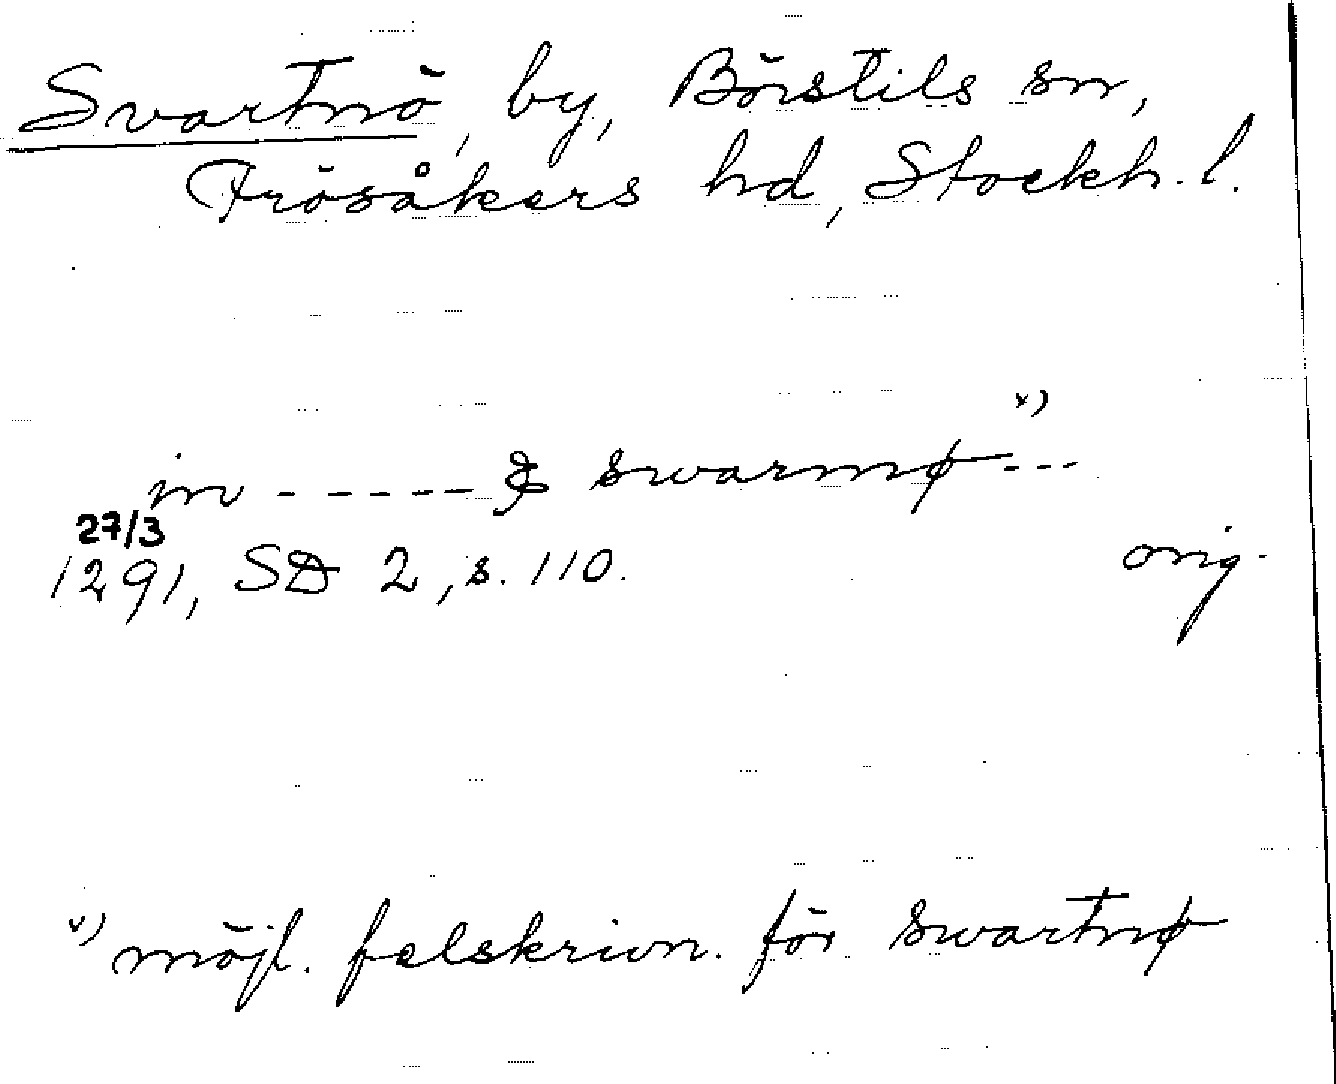 Svartnö, by, Börstils sn,
Frösåkers hd, Stockh. l.
x)
in - - - - - - & swarnø - - -
27/3
1291, SD 2, s. 110. orig.
x) möjl. felskrivn. för swartnø